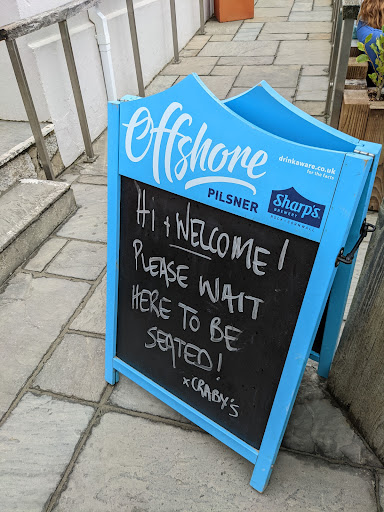 Offshore
PILSNER
drinkaware.co.uk
for the facts
Sharp's
BREWERY
ROCK, CORNWALL
HI + WELCOME!
PLEASE WAIT
HERE TO BE
SEATED!
x CRABY'S